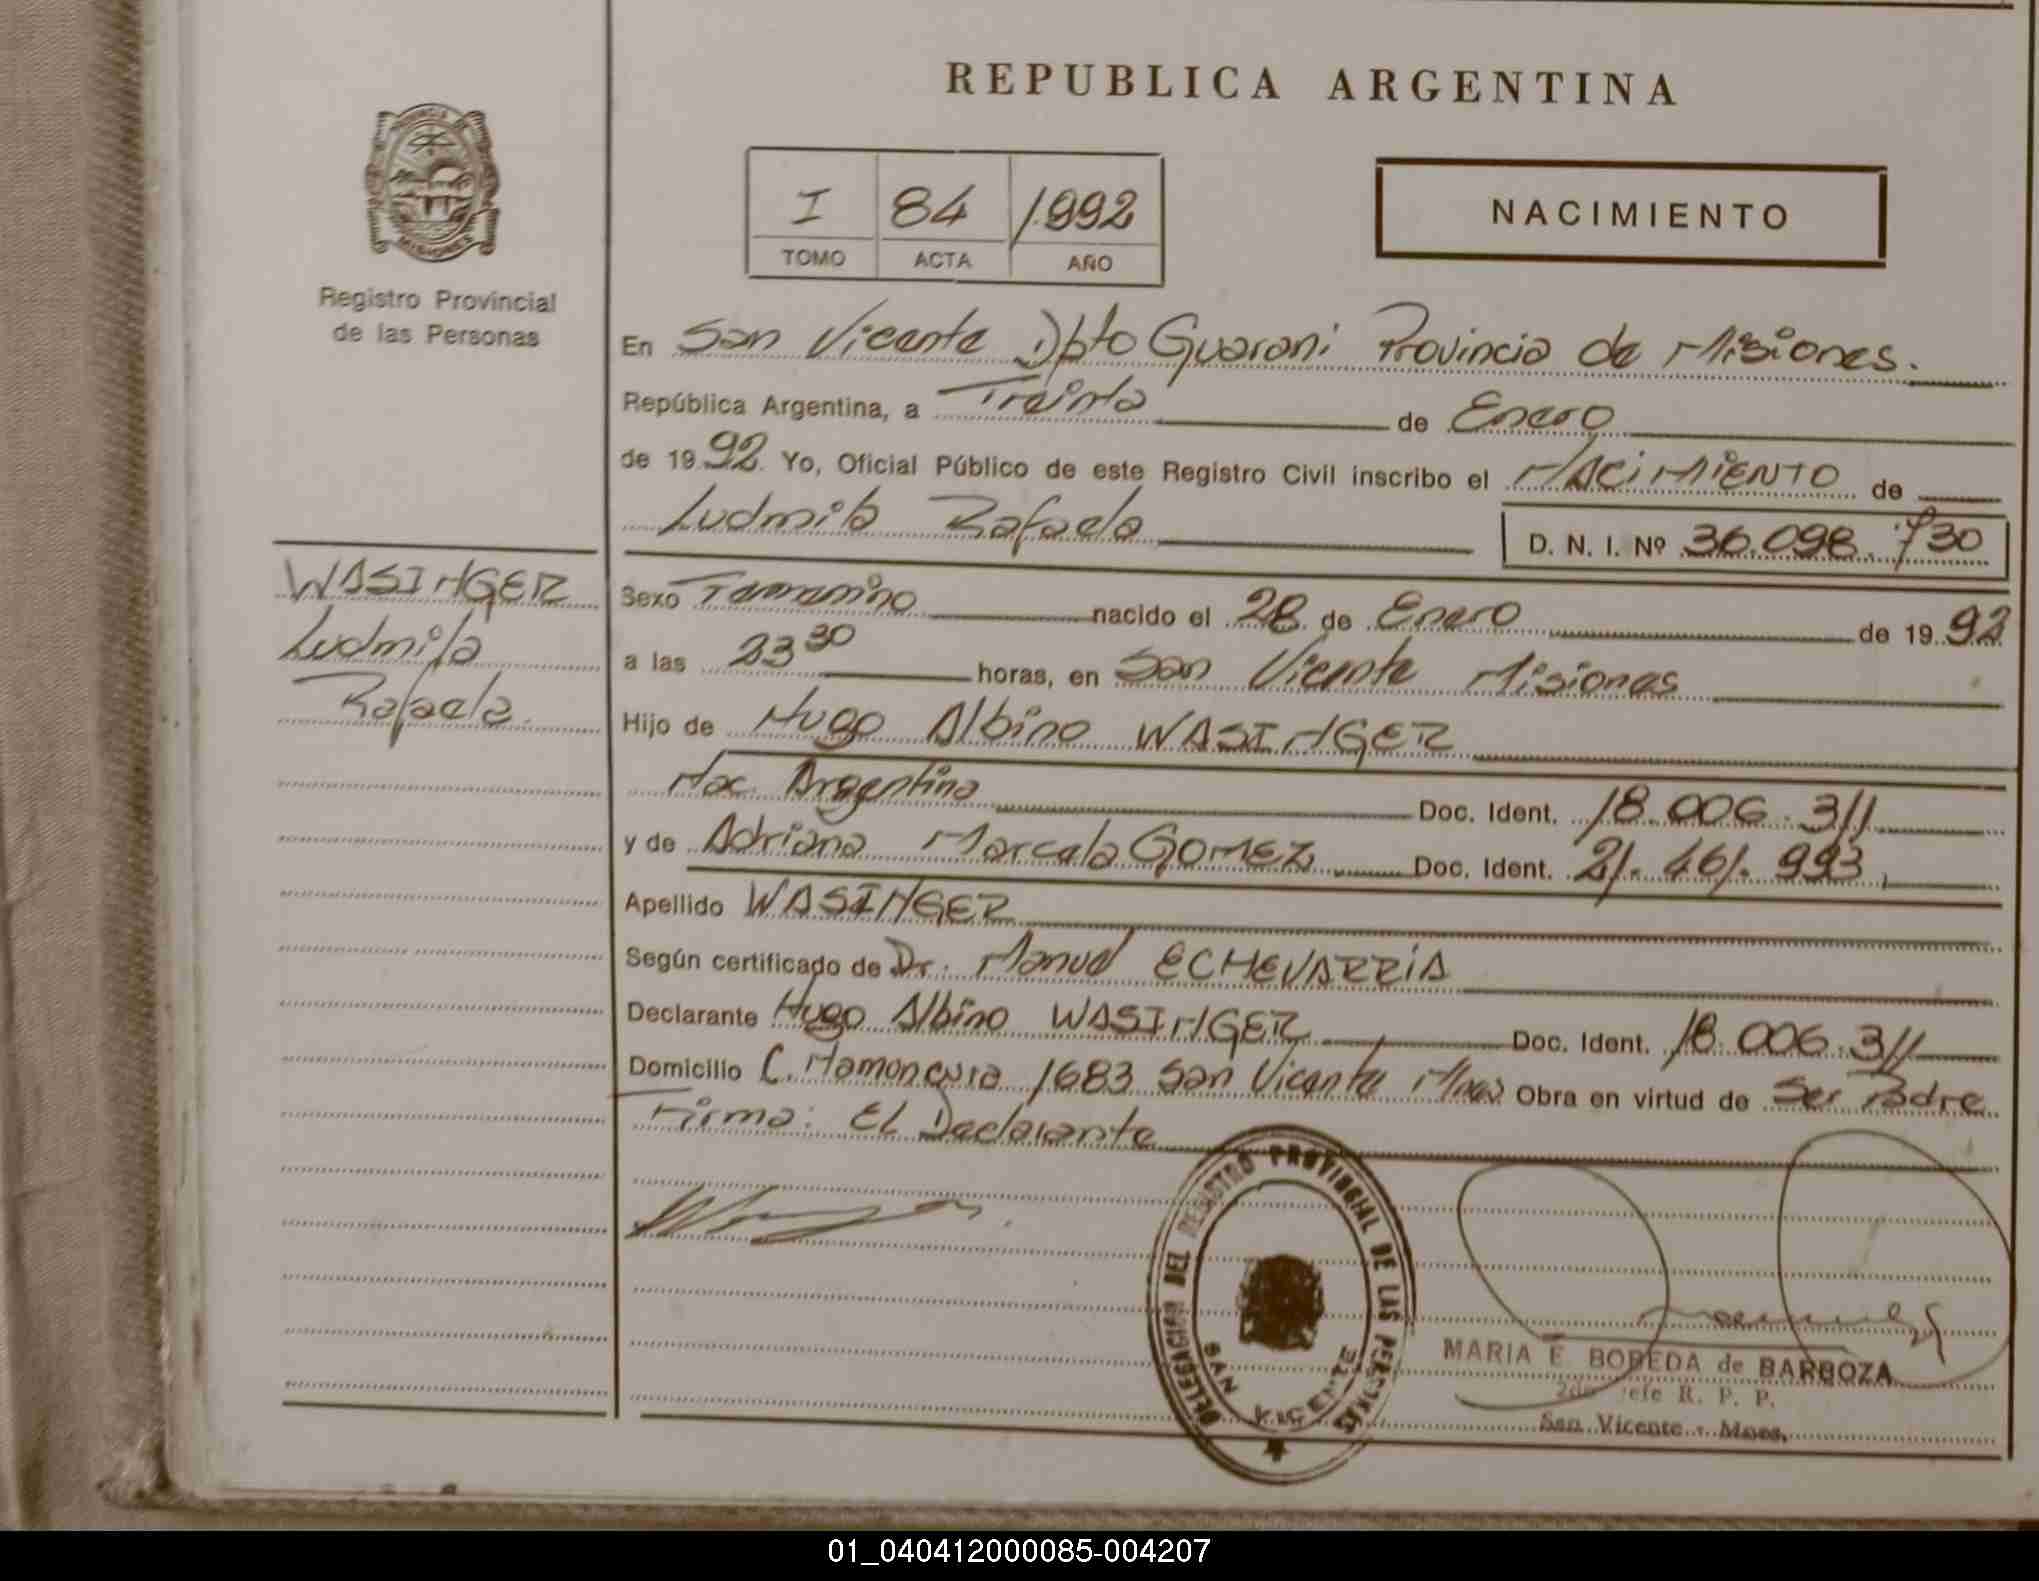 REPUBLICA ARGENTINA
I 84 1992
TOMO ACTA AÑO
NACIMIENTO
MISIONES
Registro Provincial
de las Personas
En San Vicente Dpto Guarani Provincia de Misiones.
República Argentina, a Treinta de Enero
de 1992 Yo, Oficial Público de este Registro Civil inscribo el NACIMIENTO de
Ludmila Rafaela D. N. I. Nº 36.098.730
WASINGER
Ludmila
Rafaela
Sexo Femenino nacido el 28 de Enero de 1992
a las 23 30 horas, en San Vicente Misiones
Hijo de Hugo Albino WASINGER
Nac. Argentina Doc. Ident. 18.006.311
y de Adriana Marcela GOMEZ Doc. Ident. 21.461.993
Apellido WASINGER
Según certificado de Dr. Manuel ECHEVARRIA
Declarante Hugo Albino WASINGER Doc. Ident. 18.006.311
Domicilio C. 1683 San Vicente Mnes Obra en virtud de Ser Padre
Firma: El Declarante
DELEGACION DEL REGISTRO PROVINCIAL DE LAS PERSONAS
SAN VICENTE
MARIA E. BOBEDA de BARBOZA
2do Jefe R. P. P.
San Vicente - Mnes.
01_040412000085-004207